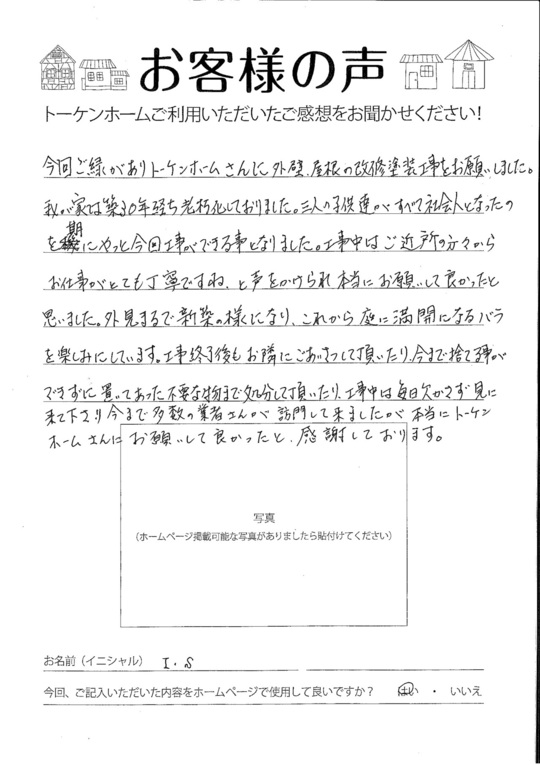 お客様の声
トーケンホームご利用いただいたご感想をお聞かせください!
今回ご縁がありトーケンホームさんに外壁、屋根の改修塗装工事をお願いしました。
我が家は築30年経ち老朽化しておりました。三人の子供達がすべて社会人となったの
を期にやっと今回工事ができる事となりました。工事中はご近所の方々から
お仕事がとても丁寧ですね、と声をかけられ本当にお願いして良かったと
思いました。外見まるで新築の様になり、これから庭に満開になるバラ
を楽しみにしています。工事終了後もお隣にごあいさつして頂いたり、今まで捨てる事が
できずに置いてあった不要な物まで処分して頂いたり、工事中は毎日欠かさず見に
来て下さり今まで多数の業者さんが訪問して来ましたが本当にトーケン
ホームさんにお願いして良かったと、感謝しております。
写真
(ホームページ掲載可能な写真がありましたら貼付けてください)
お名前(イニシャル) I.S
今回、ご記入いただいた内容をホームページで使用して良いですか? はい ・ いいえ